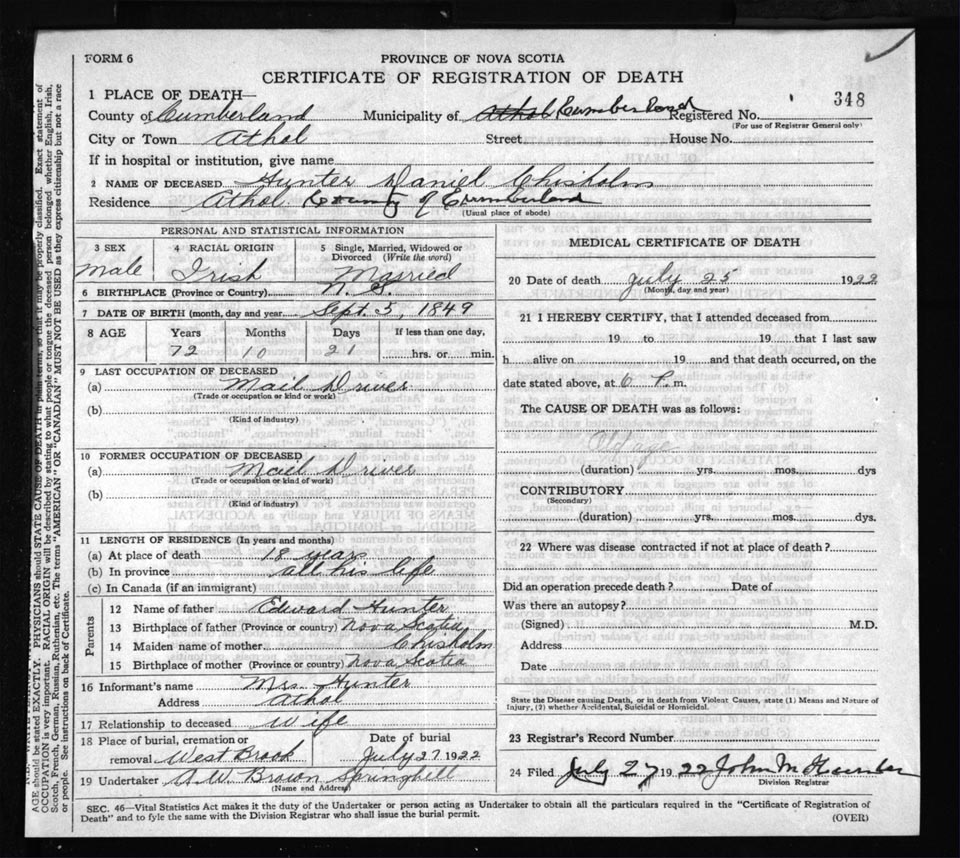 FORM 6
PROVINCE OF NOVA SCOTIA
CERTIFICATE OF REGISTRATION OF DEATH
348
1 PLACE OF DEATH—
County of Cumberland Municipality of Athol Cumberland Registered No.
(For use of Registrar General only)
City or Town Athol Street House No.
If in hospital or institution, give name
2 NAME OF DECEASED Hunter Daniel Chisholm
Residence Athol County of Cumberland
(Usual place of abode)
PERSONAL AND STATISTICAL INFORMATION
3 SEX 4 RACIAL ORIGIN 5 Single, Married, Widowed or Divorced (Write the word)
Male Irish Married
6 BIRTHPLACE (Province or Country) N. S.
7 DATE OF BIRTH (month, day and year) Sept. 5, 1849
8 AGE Years Months Days If less than one day,
72 10 21 hrs. or min.
9 LAST OCCUPATION OF DECEASED
(a) Mail Driver
(Trade or occupation or kind or work)
(b)
(Kind of industry)
10 FORMER OCCUPATION OF DECEASED
(a) Mail Driver
(Trade or occupation or kind or work)
(b)
(Kind of industry)
11 LENGTH OF RESIDENCE (In years and months)
(a) At place of death 18 years
(b) In province all his life
(c) In Canada (if an immigrant)
Parents
12 Name of father Edward Hunter
13 Birthplace of father (Province or country) Nova Scotia
14 Maiden name of mother Chisholm
15 Birthplace of mother (Province or country) Nova Scotia
16 Informant's name Mrs. Hunter
Address Athol
17 Relationship to deceased Wife
18 Place of burial, cremation or removal West Brook Date of burial July 27 1922
19 Undertaker A.W. Brown Springhill
(Name and Address)
MEDICAL CERTIFICATE OF DEATH
20 Date of death July 25 1922
(Month, day and year)
21 I HEREBY CERTIFY, that I attended deceased from
19 to 19 that I last saw
h alive on 19 and that death occurred, on the
date stated above, at 6 P. m.
The CAUSE OF DEATH was as follows:
Old age
(duration) yrs. mos. dys
CONTRIBUTORY
(Secondary)
(duration) yrs. mos. dys.
22 Where was disease contracted if not at place of death?
Did an operation precede death? Date of
Was there an autopsy?
(Signed) M.D.
Address
Date
State the Disease causing Death, or in death from Violent Causes, state (1) Means and Nature of
Injury, (2) whether Accidental, Suicidal or Homicidal.
23 Registrar's Record Number
24 Filed July 27 1922 John M Hunter
Division Registrar
SEC. 46—Vital Statistics Act makes it the duty of the Undertaker or person acting as Undertaker to obtain all the particulars required in the "Certificate of Registration of
Death" and to fyle the same with the Division Registrar who shall issue the burial permit.
(OVER)
AGE should be stated EXACTLY. PHYSICIANS should STATE CAUSE OF DEATH in plain terms, so that it may be properly classified. Exact statement of
OCCUPATION is very important. RACIAL ORIGIN will be described by stating to what people or tongue the deceased person belonged whether English, Irish,
Scotch, French, German, Russian, Ruthenian, etc. The terms "AMERICAN" OR "CANADIAN" MUST NOT BE USED as they express citizenship but not a race
or people. See instructions on back of Certificate.